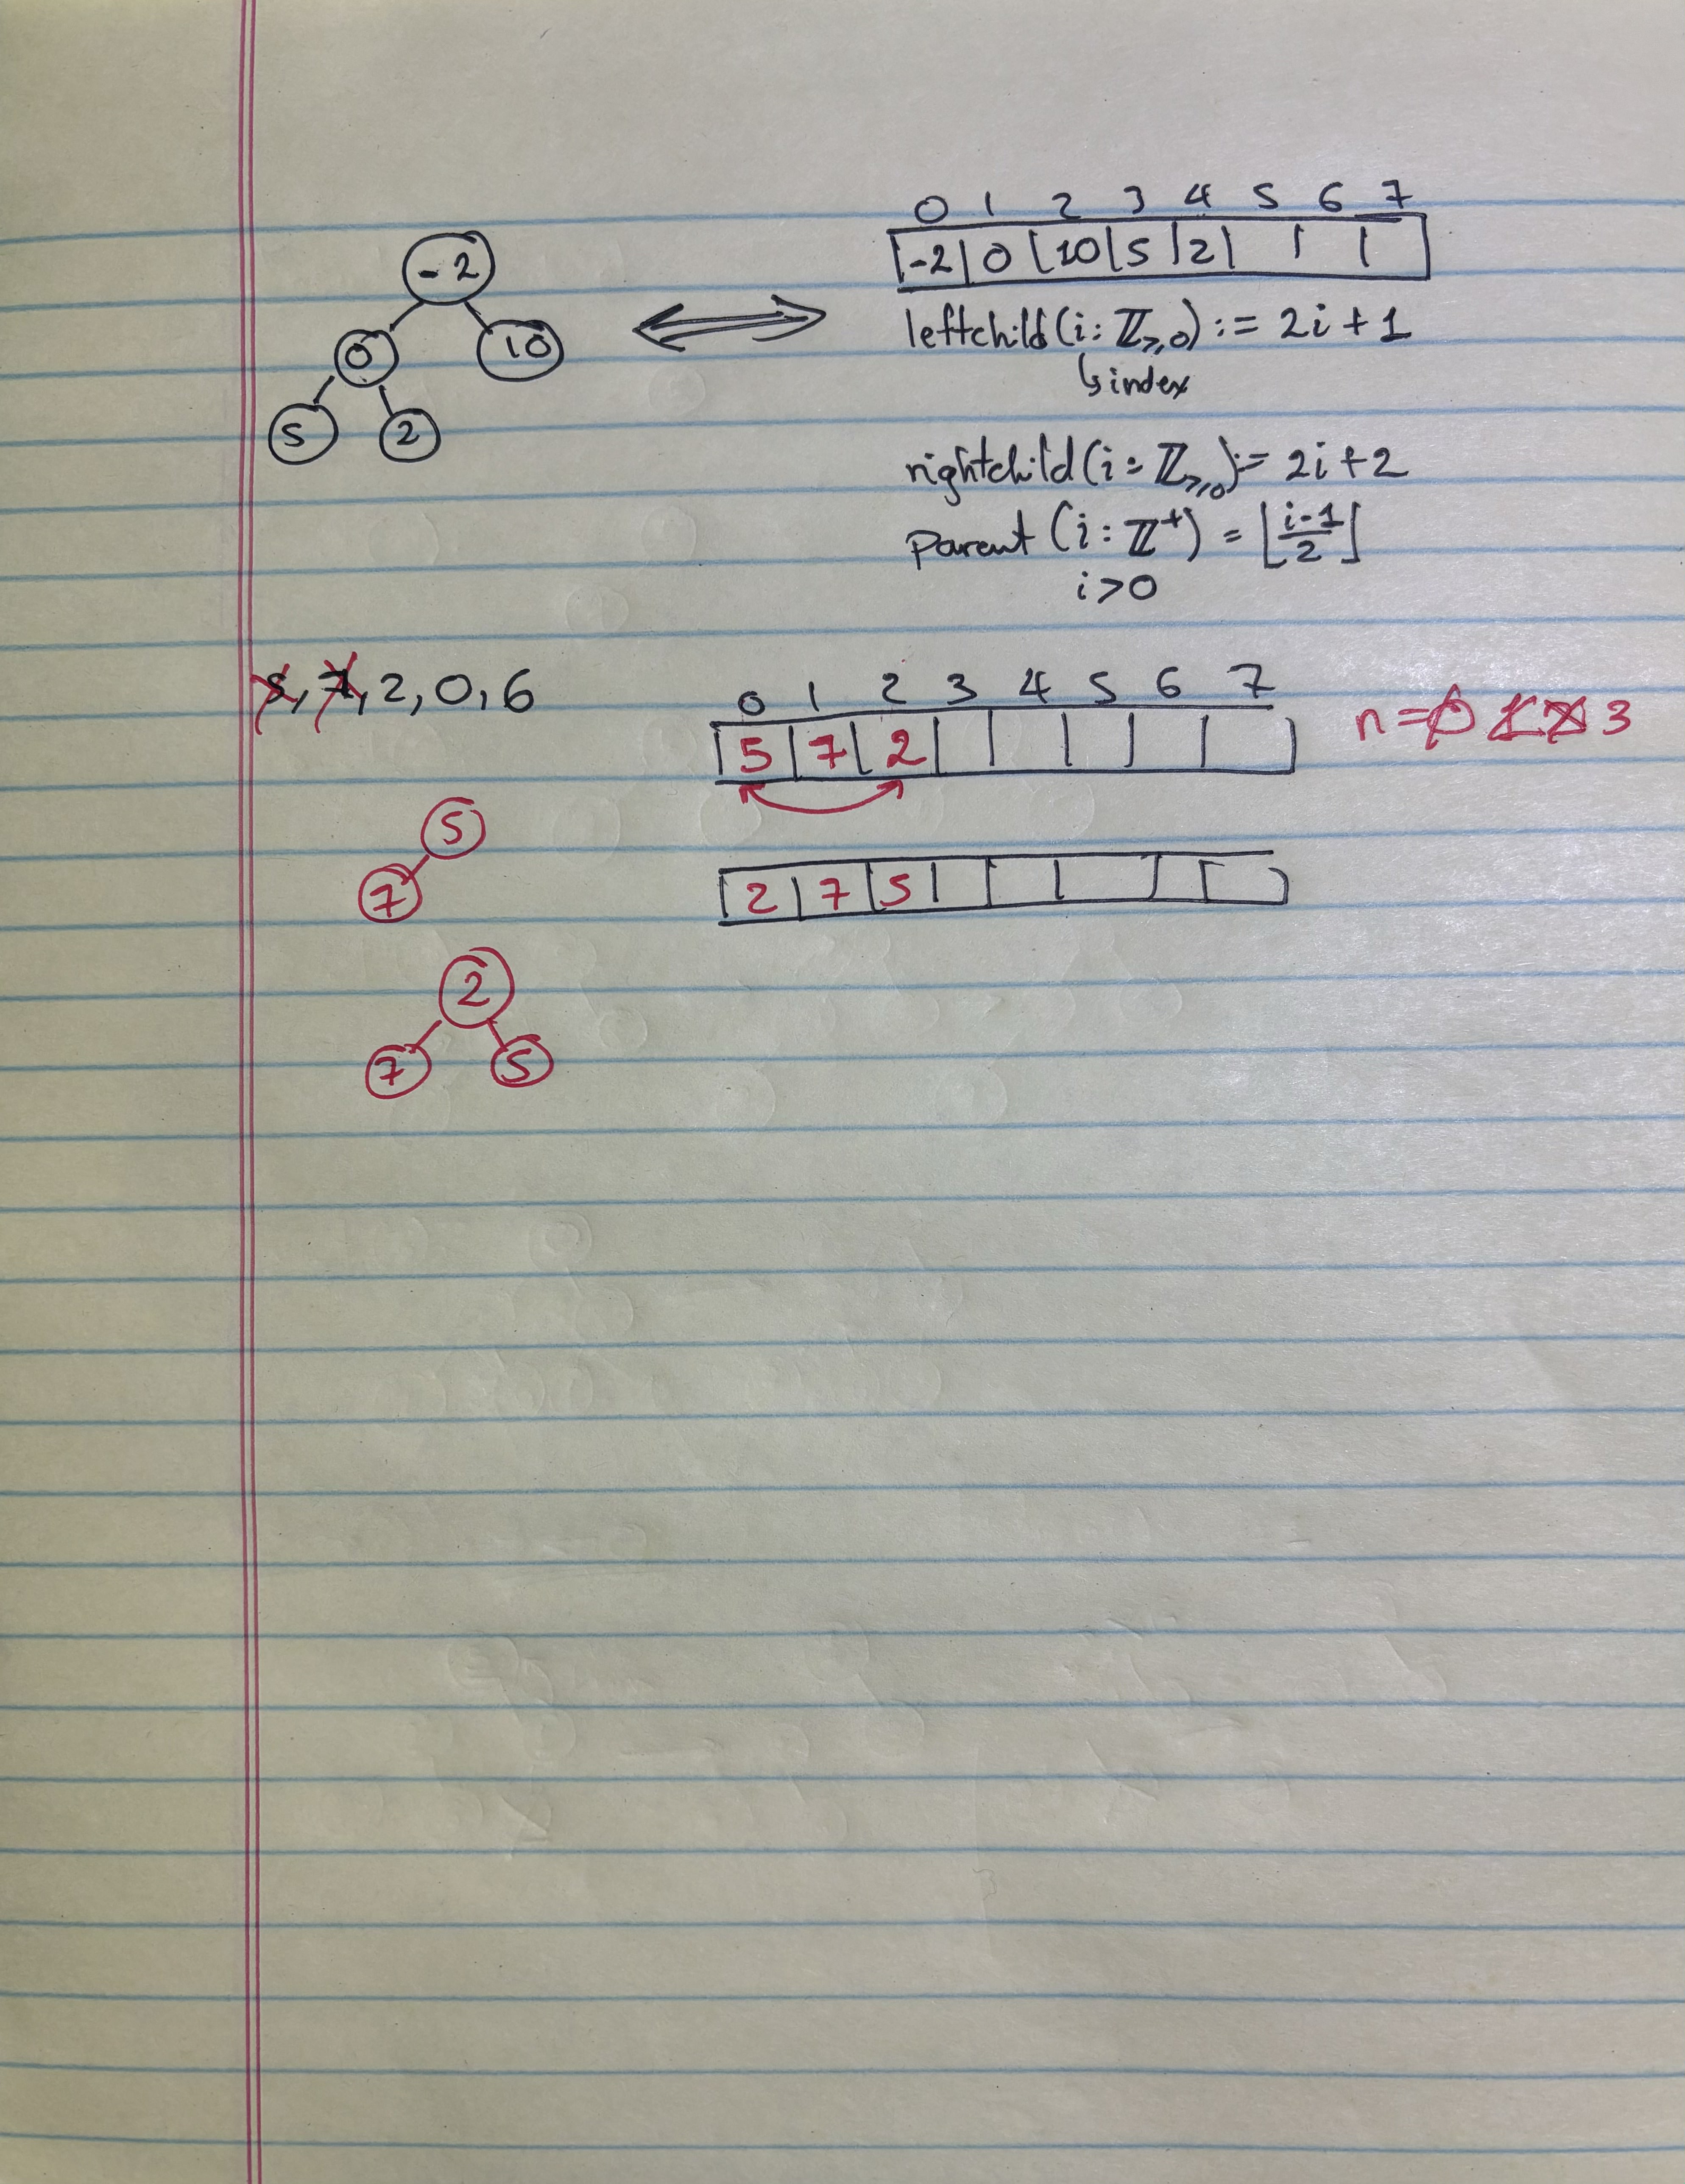 0 1 2 3 4 5 6 7
-2 | 0 | 10 | 5 | 2 | | |
-2
0 10
5 2
leftchild (i : ℤ≥0) := 2i + 1
↳ index
rightchild (i : ℤ≥0) := 2i + 2
parent (i : ℤ⁺) = ⌊(i-1)/2⌋
i > 0
5, 7, 2, 0, 6
0 1 2 3 4 5 6 7
5 | 7 | 2 | | | | |
n = 0 1 2 3
5
7
2 | 7 | 5 | | | | |
2
7 5